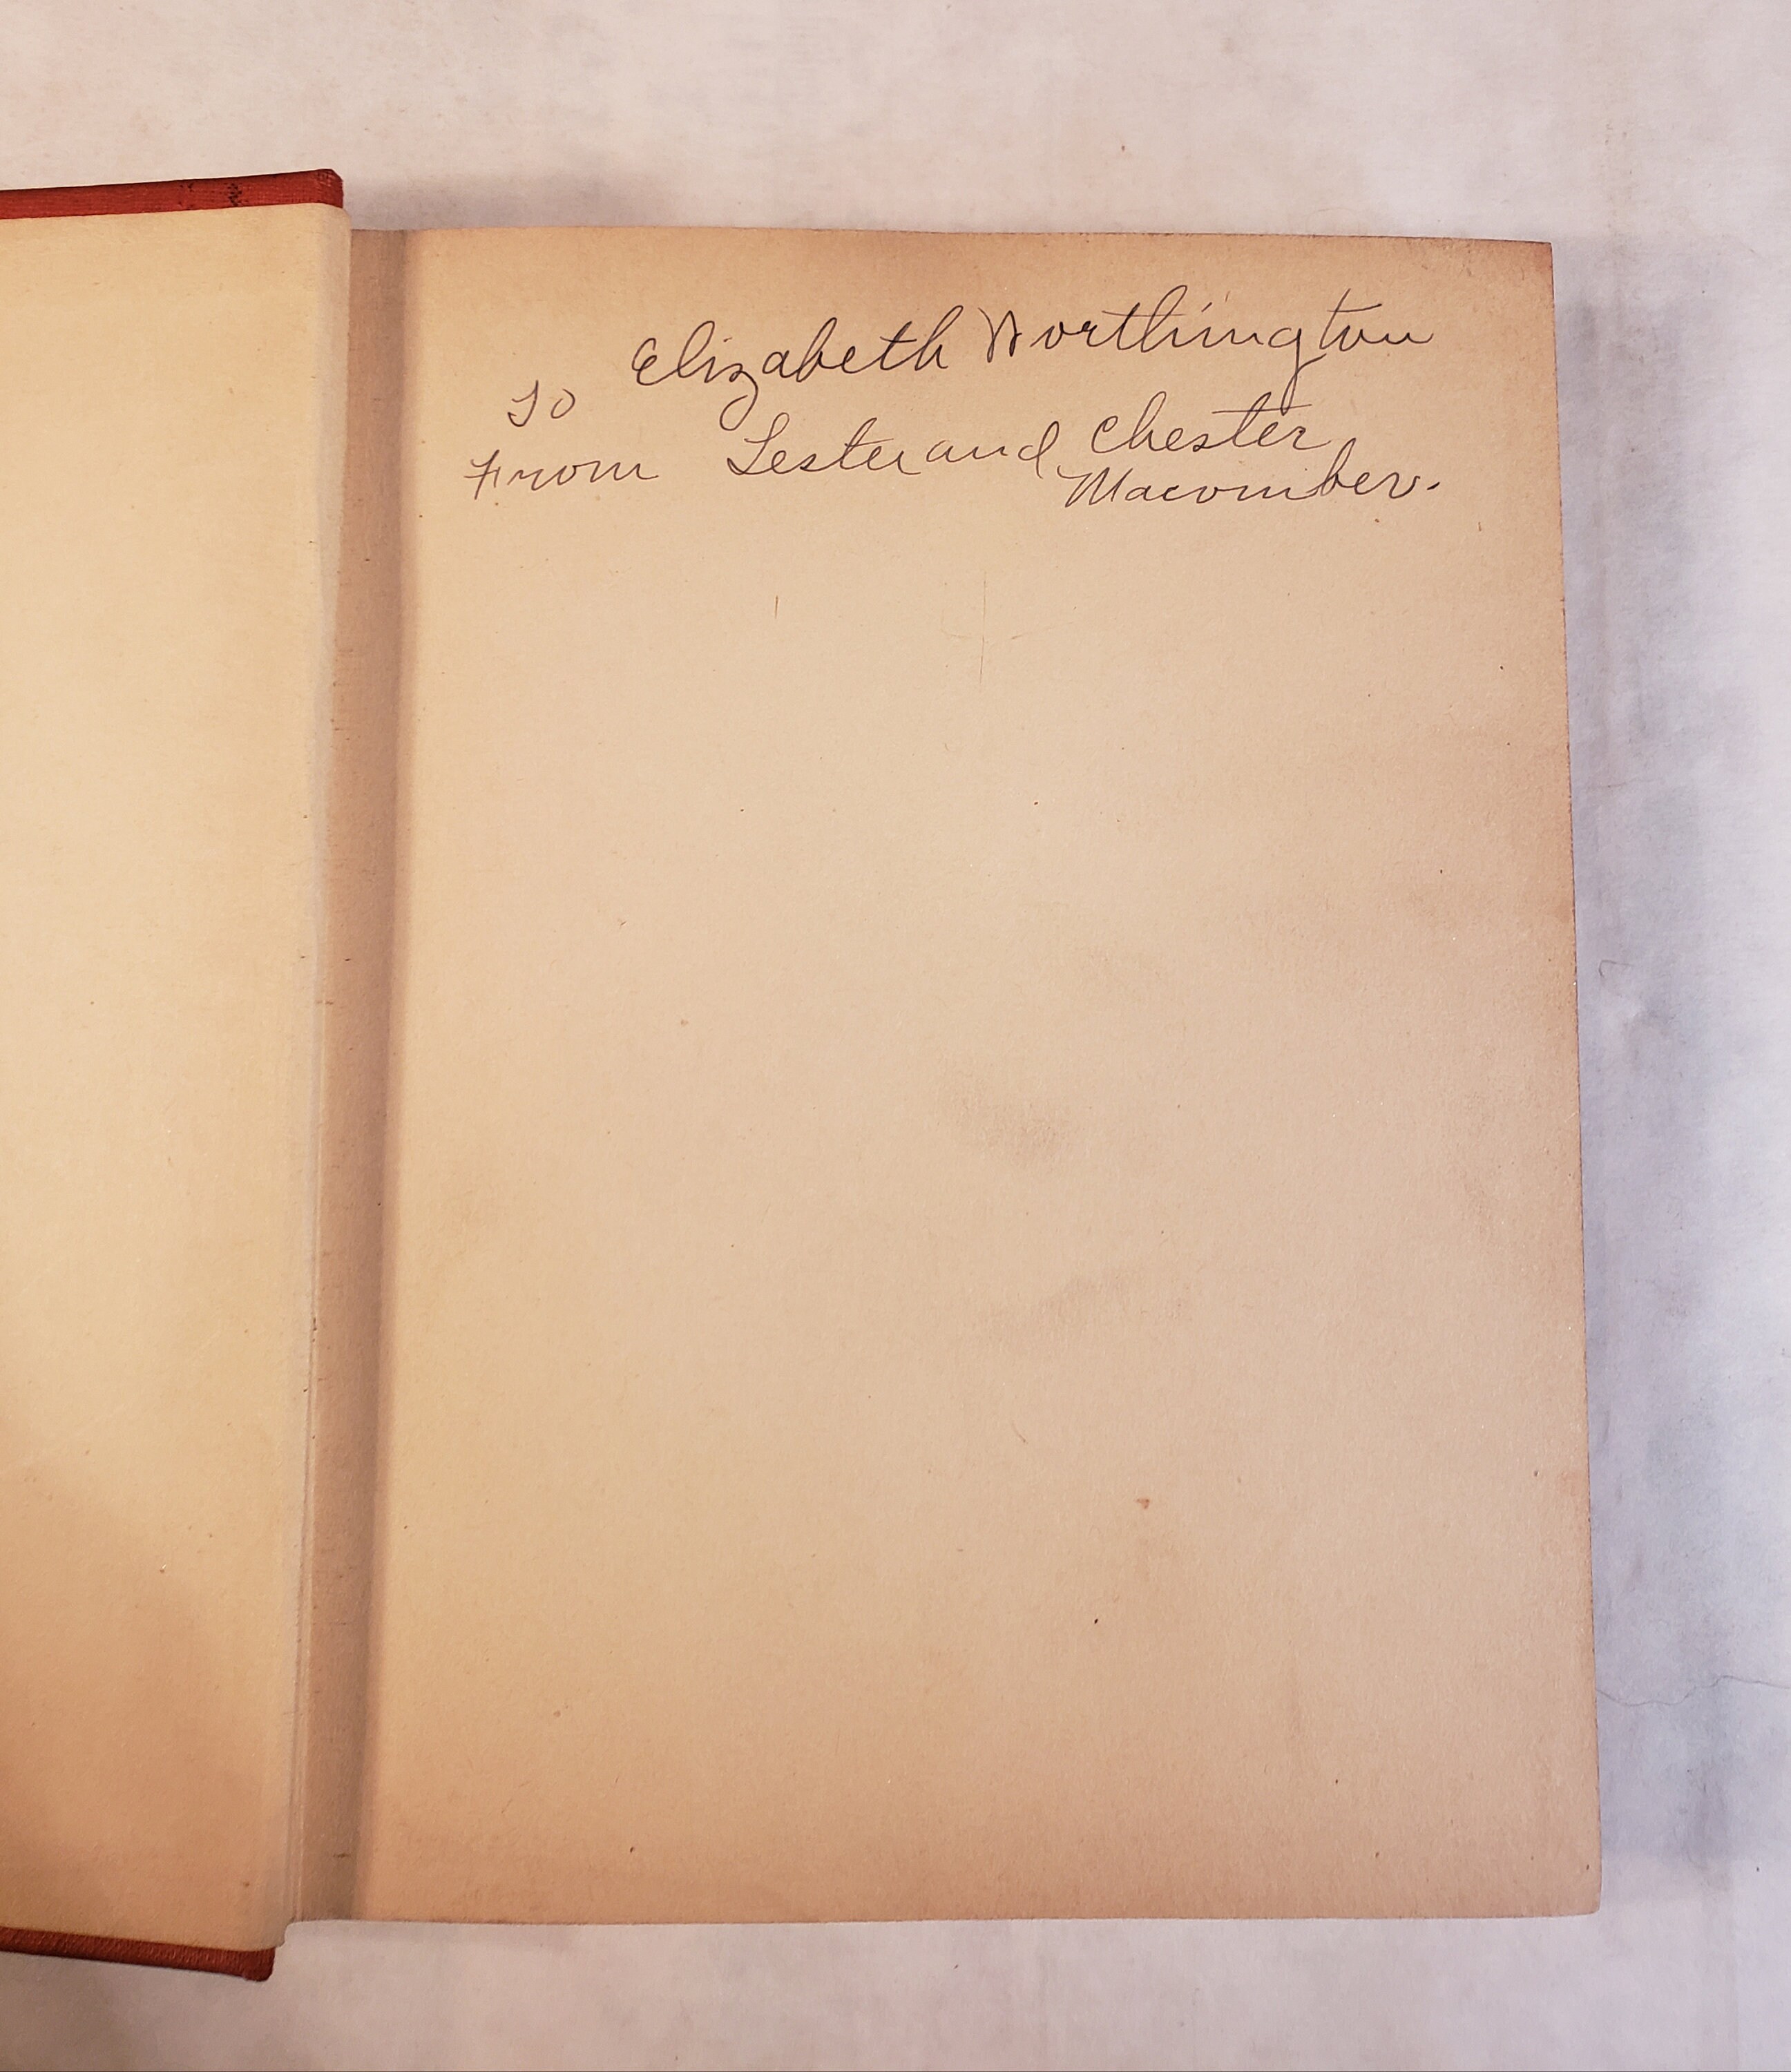 To Elizabeth Worthington
From Lester and Chester
Macomber.